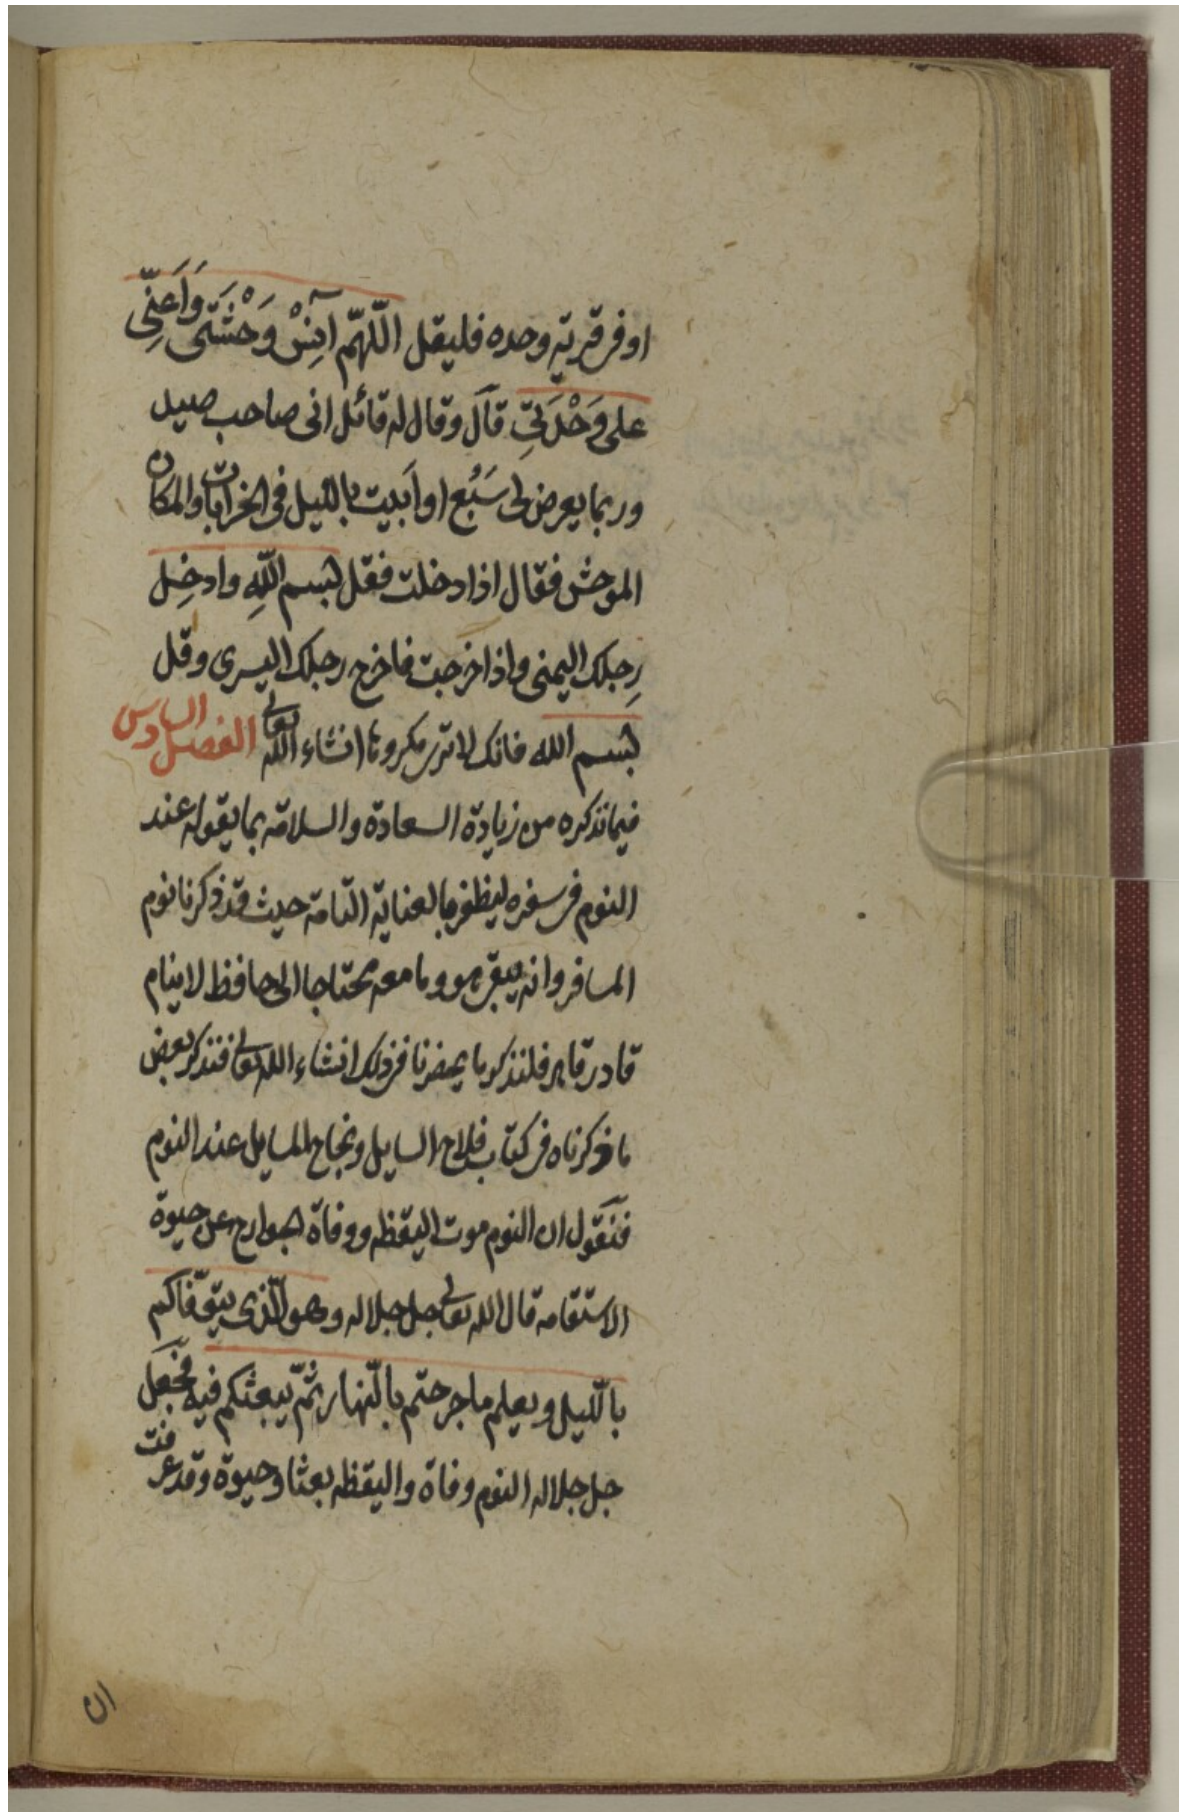 او فى قرية وحده فليقل اللّهمّ آنِسْ وَحْشَتى وَاَعنِّى
على وَحْدَتِى قال وقال له قائل انى صاحب صيد
وربما يعرض لى سَبُع او اَبيت بالليل فى الخرابات والمكان
الموحش فقال اذا دخلت فقل بسم اللّهِ وادخِل
رِجلك اليمنى واذا خرجت فاخرج رجلك اليسرى وقل
بسم الله فانك لا ترى مكروها انشاء الله تعالى الفصل السادس
فيما نذكره من زيادة السعادة والسلامة بما يقوله عند
النوم فى سفره ليظفر بالعناية التّامة حيث قد ذكرنا نوم
المسافر وانه يبقى هو وما معه محتاجا الى حافظ لا ينام
قادر قاهر فلنذكر ما يحضرنا فى ذلك انشاء الله تعالى فنذكر بعض
ما ذكرناه فى كتاب فلاح السايل ونجاح المسايل عند النوم
فنقول ان النوم موت اليقظه ووفاة الجوارح عن حيوة
الاستقامه قال الله تعالى جل جلاله وهو الّذى يتوفّاكم
باللّيل ويعلم ما جرحتم بالنّهار ثمّ يبعثكم فيه فجعل
جل جلاله النوم وفاة واليقظه بعثا وحيوة وقد عرفت
ان